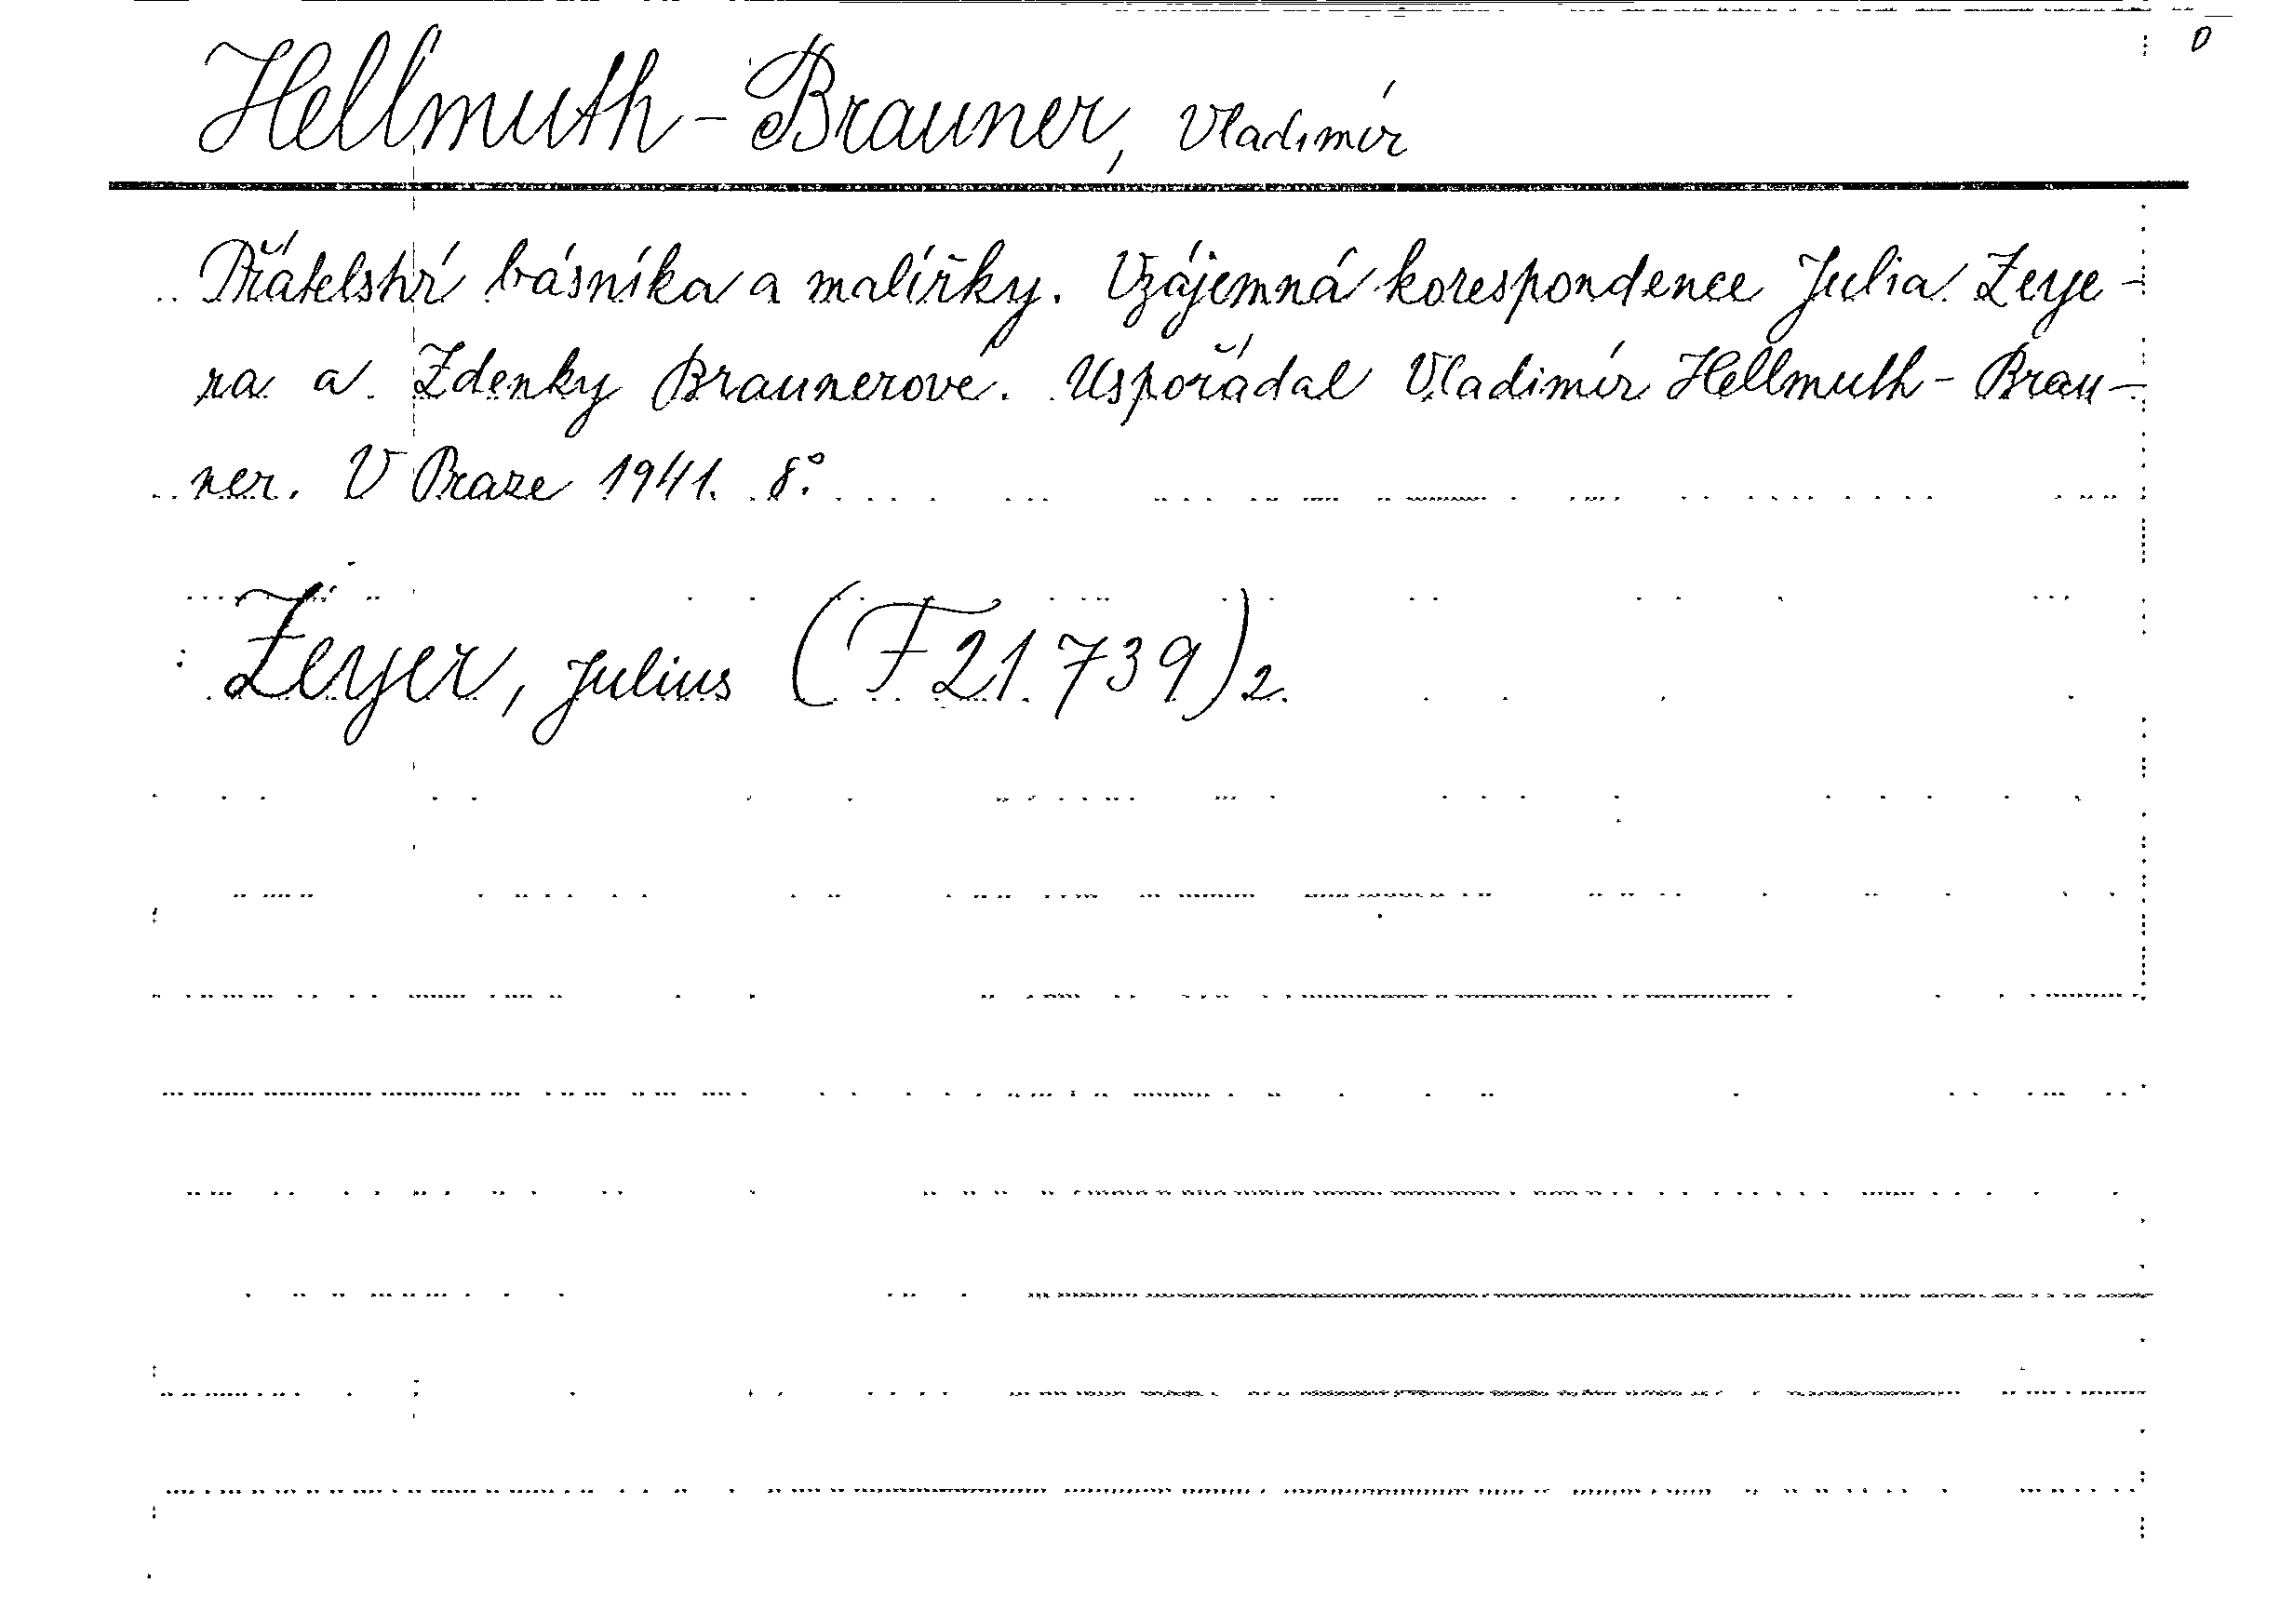 Hellmuth-Brauner, Vladimír
Přátelství básníka a malířky. Vzájemná korespondence Julia Zeye-
ra a Zdenky Braunerové. Uspořádal Vladimír Hellmuth-Brau-
ner. V Praze 1941. 8°.
Zeyer, Julius (F 21.739) 2.